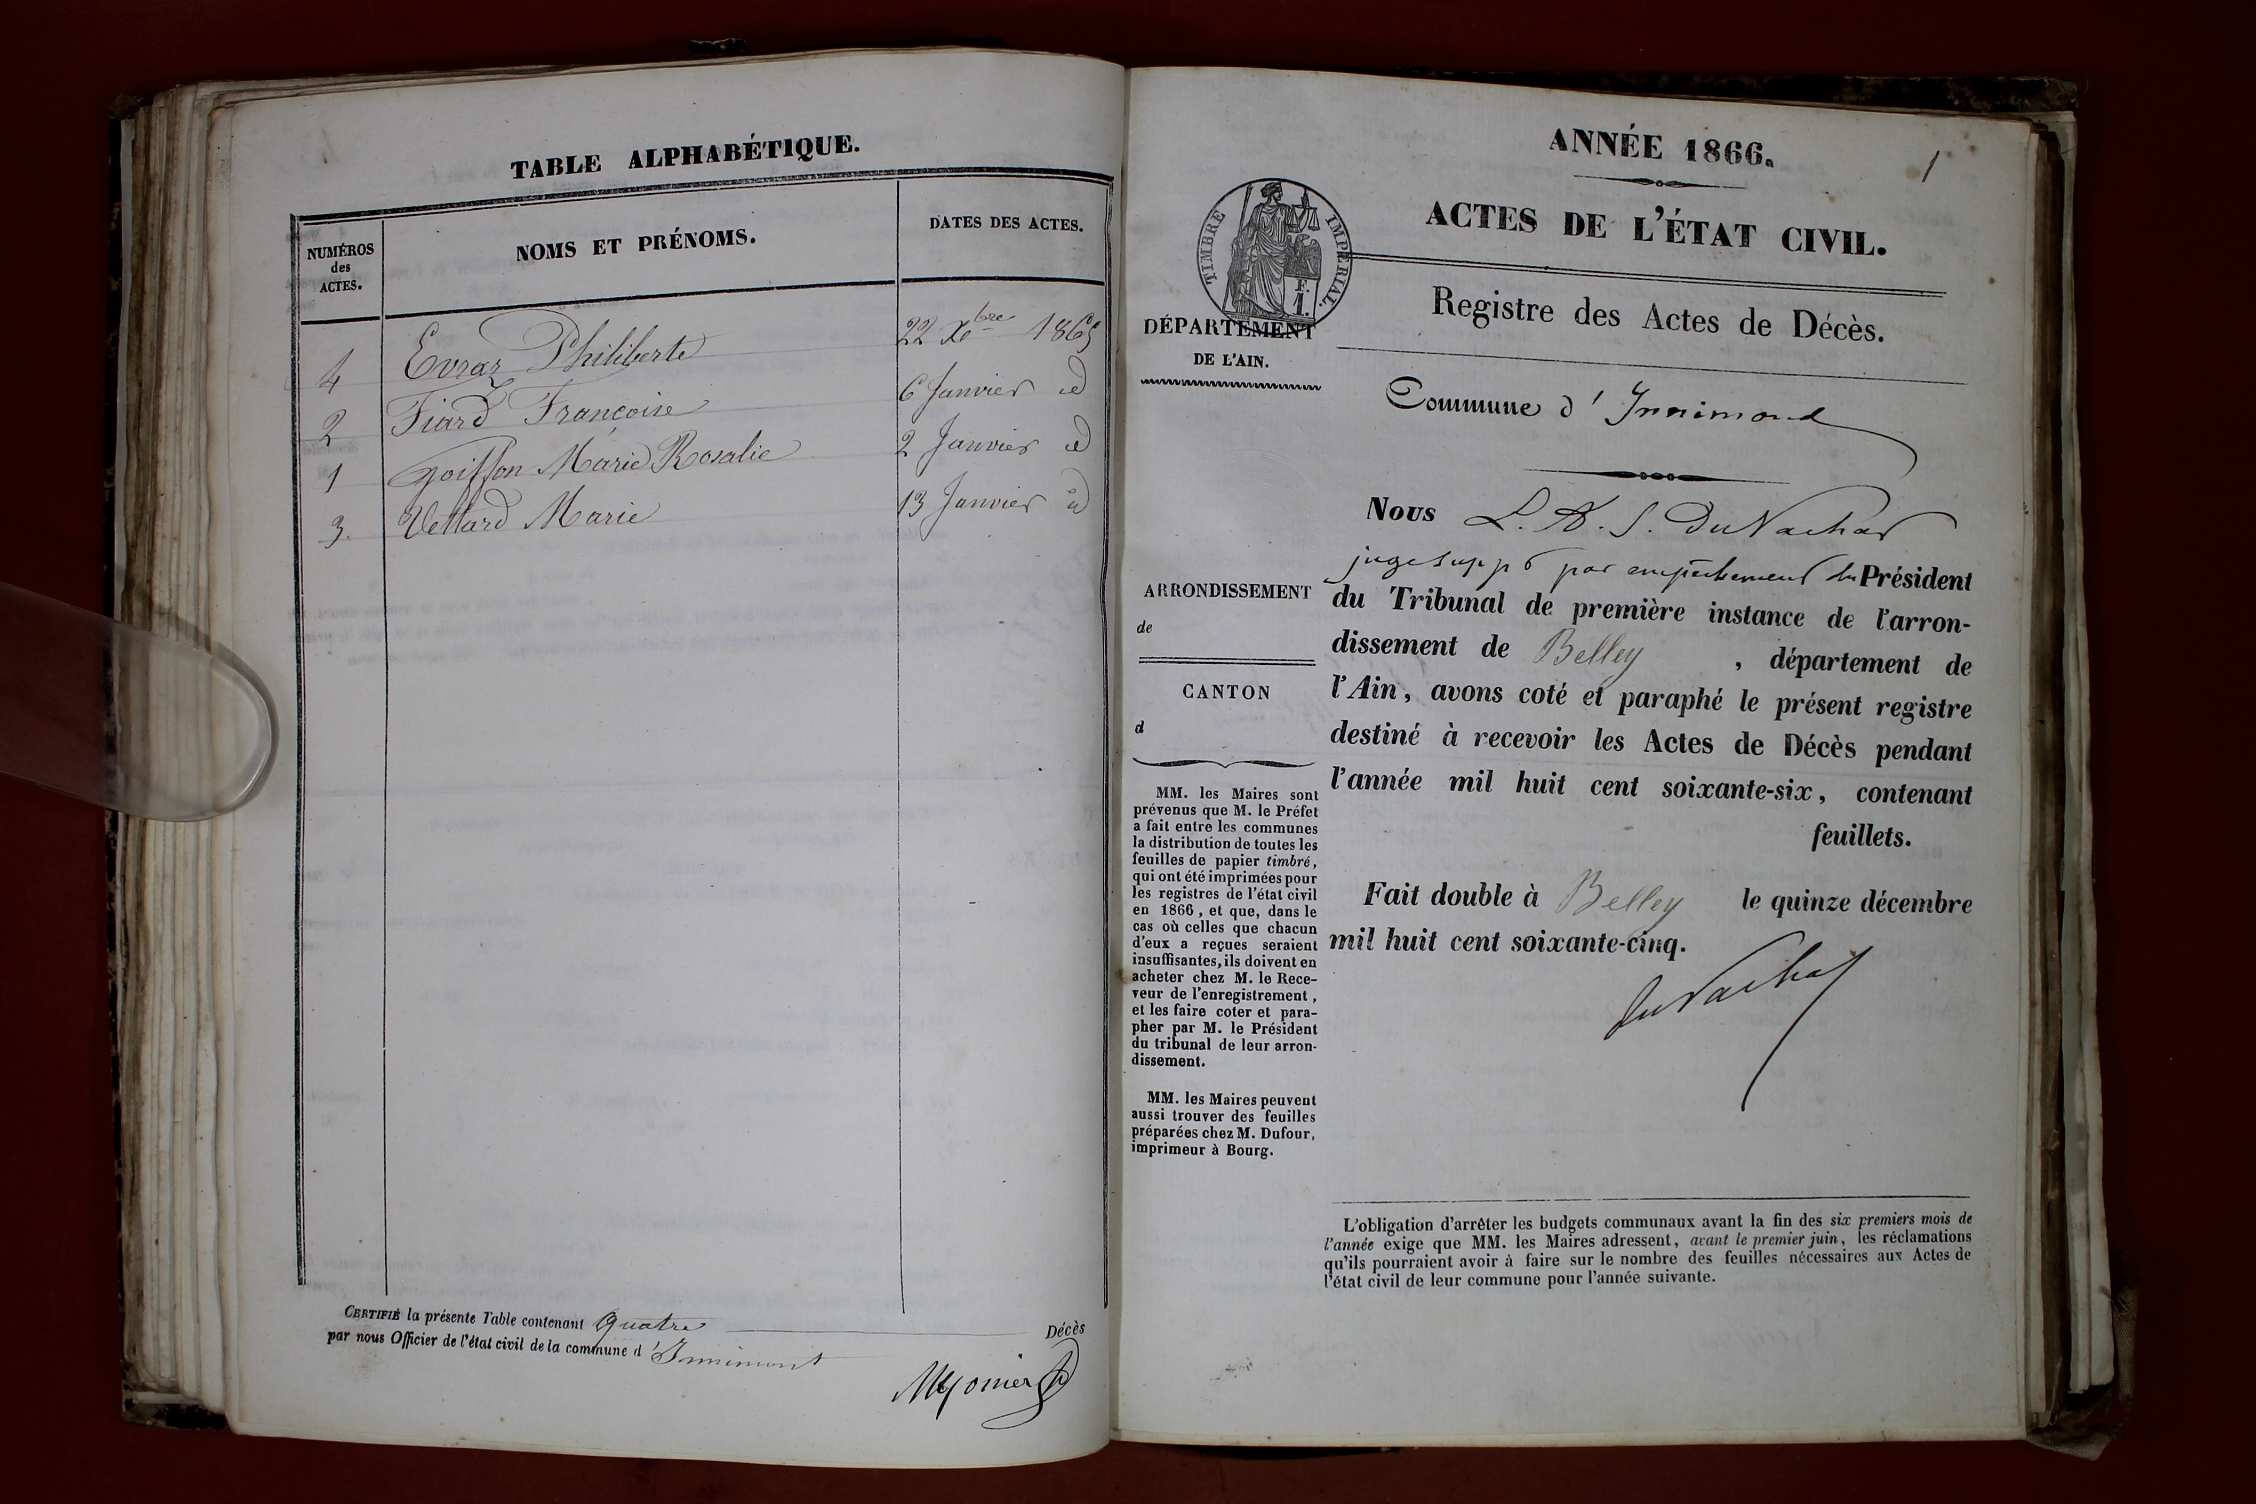 TABLE ALPHABÉTIQUE.
NUMÉROS
des
ACTES.
NOMS ET PRÉNOMS.
DATES DES ACTES.
4 Evraz Philiberte 22 Xbre 1865
2 Fiard Françoise 6 Janvier id
1 Goiffon Marie Rosalie 2 Janvier id
3. Vettard Marie 13 Janvier id
CERTIFIÉ la présente Table contenant Quatre Décès
par nous Officier de l'état civil de la commune d'Innimont
ANNÉE 1866.
1
ACTES DE L'ÉTAT CIVIL.
TIMBRE IMPÉRIAL.
F.
1.
DÉPARTEMENT
DE L'AIN.
Registre des Actes de Décès.
Commune d'Innimond
ARRONDISSEMENT
de
CANTON
d
MM. les Maires sont
prévenus que M. le Préfet
a fait entre les communes
la distribution de toutes les
feuilles de papier timbré,
qui ont été imprimées pour
les registres de l'état civil
en 1866, et que, dans le
cas où celles que chacun
d'eux a reçues seraient
insuffisantes, ils doivent en
acheter chez M. le Rece-
veur de l'enregistrement,
et les faire coter et para-
pher par M. le Président
du tribunal de leur arron-
dissement.
MM. les Maires peuvent
aussi trouver des feuilles
préparées chez M. Dufour,
imprimeur à Bourg.
Nous L. A. S. DuVachat
juge supp par empêchement du Président
du Tribunal de première instance de l'arron-
dissement de Belley, département de
l'Ain, avons coté et paraphé le présent registre
destiné à recevoir les Actes de Décès pendant
l'année mil huit cent soixante-six, contenant
feuillets.
Fait double à Belley le quinze décembre
mil huit cent soixante-cinq.
DuVachat
L'obligation d'arrêter les budgets communaux avant la fin des six premiers mois de
l'année exige que MM. les Maires adressent, avant le premier juin, les réclamations
qu'ils pourraient avoir à faire sur le nombre des feuilles nécessaires aux Actes de
l'état civil de leur commune pour l'année suivante.